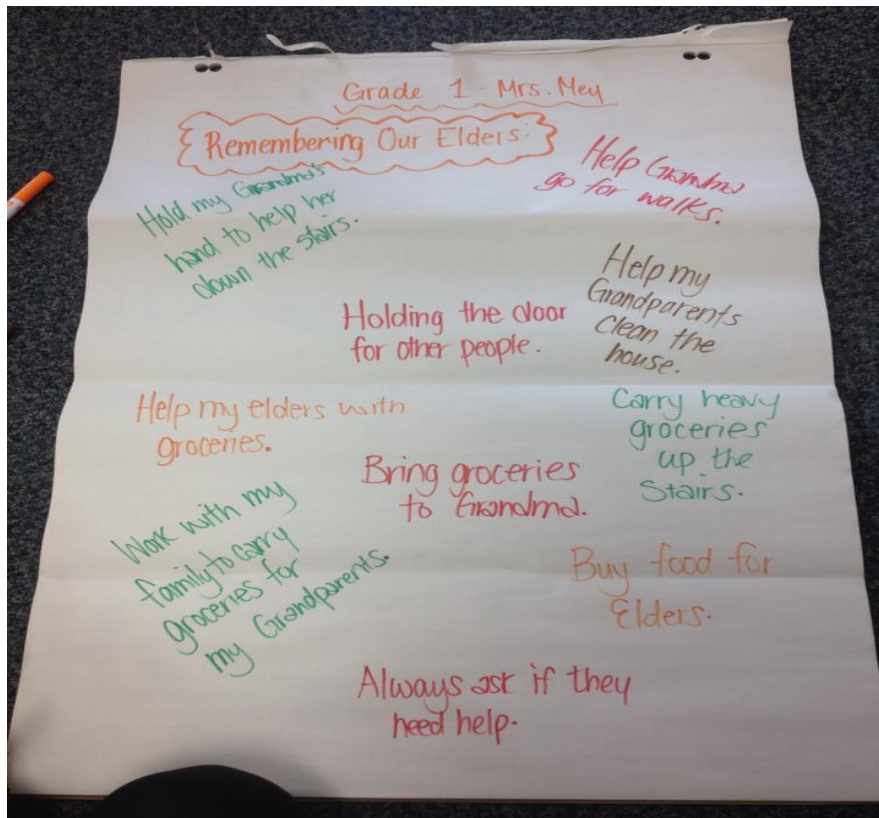 Grade 1 · Mrs. Mey
Remembering Our Elders:
Hold my Grandma's
hand to help her
down the stairs.
Help Grandma
go for walks.
Help my
Grandparents
clean the
house.
Holding the door
for other people.
Help my elders with
groceries.
Carry heavy
groceries
up the
Stairs.
Bring groceries
to Grandma.
Work with my
family to carry
groceries for
my Grandparents.
Buy food for
Elders.
Always ask if they
need help.